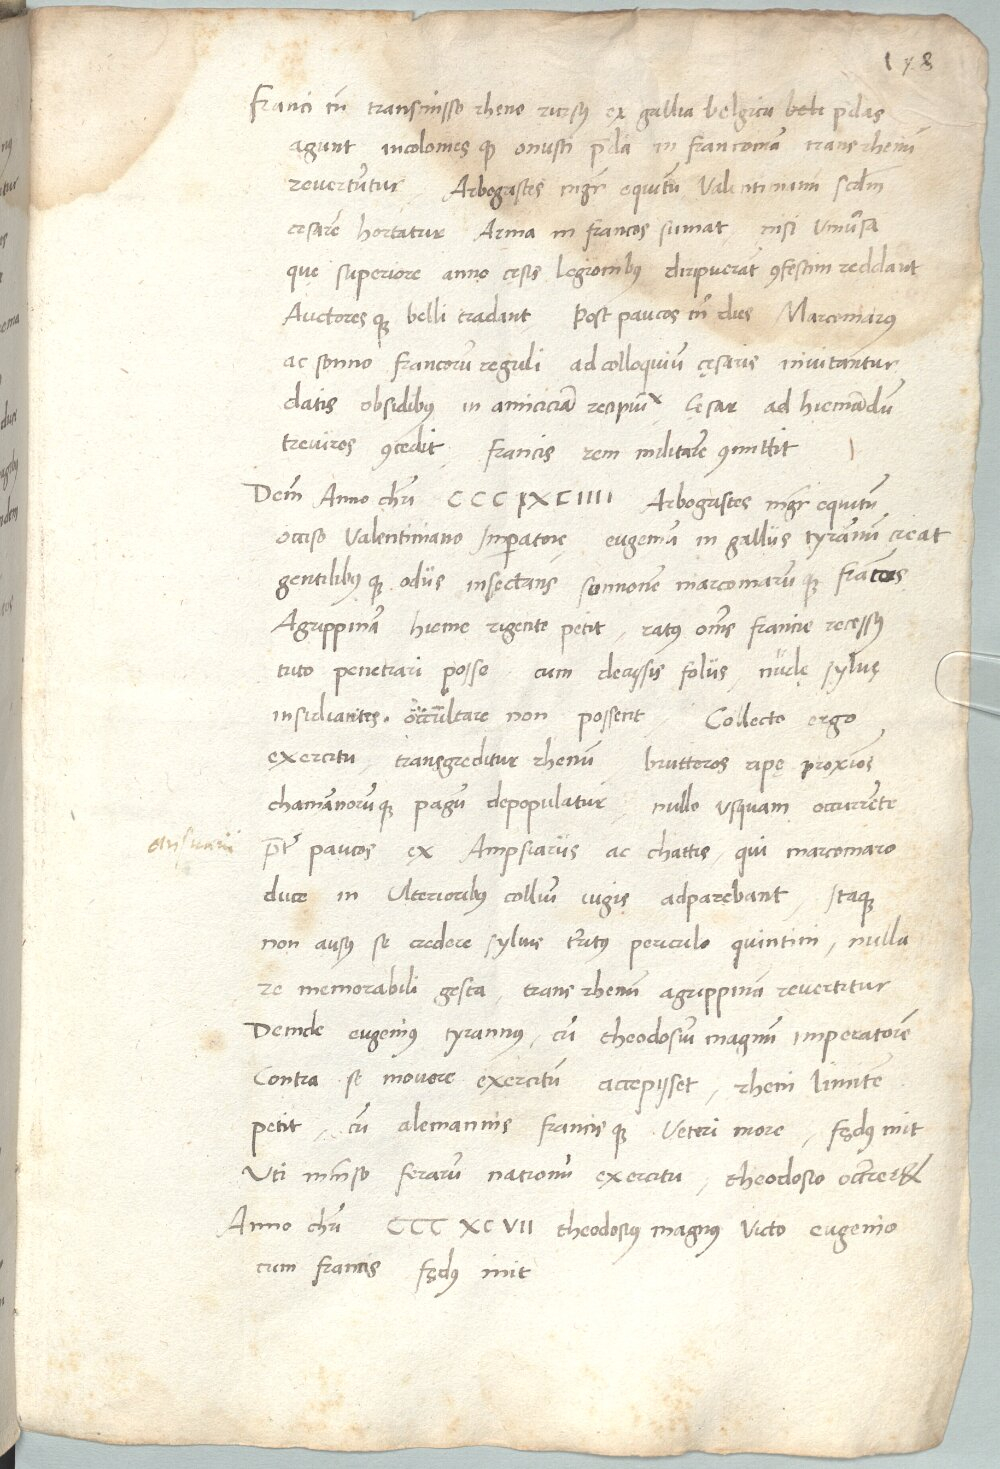 1y8
Franci tn̄ transmisso rheno rursꝰ ex gallia belgica beli p̄das
agunt incolomes qꝫ onusti p̄da in franconiā trans rhenū
revertūtur. Arbogastes mgr̄ equitū Valentinianū scdm̄
cęsarē hortatur Arma in francos sumat nisi Univ̄sa
quę superiore anno cęsis legionibꝰ diripuerāt ꝯfestim reddant
Auctores qꝫ belli tradant Post paucos tn̄ dies Marcomarꝰ
ac sonno francorū reguli ad colloquiū cęsaris invitantur
datis obsidibꝰ in amiciciā recipiūt Cęsar ad hiemādū
treviros ꝯcedit francis rem militarē ꝯmittit
Dein̄ Anno chr̄i CCC LXCIIII Arbogastes mgr̄ equitū
occiso Valentiniano Imperatore eugeniū in galliis tyrānū creat
gentilibꝰ qꝫ odiis insectans sunnonē marcomarū qꝫ fratres
Agrippinā hieme rigente petit, ratꝰ om̄s francie recessꝰ
tuto penetrari posse cum decussis foliis, nudę sylvę
insidiantes. occultare non possent, Collecto ergo
exercitu, transgreditur rhenū brutteros ripę proxīos
chamanorū qꝫ pagū depopulatur nullo usquam occurrente
ansuarii
p̄t̄ paucos ex Ampsiariis ac chattis, qui marcomaro
duce in Ulterioribꝰ colliū iugis adparebant, Itaqꝫ
non ausꝰ se credere sylvis t̄ritꝰ periculo quintini, nulla
re memorabili gesta, trans rhenū agrippinā revertitur
Deinde eugeniꝰ tyrannꝰ, cū theodosiū magnū imperatorē
Contra se movere exercitū accepisset, rheni limitē
petit, cū alemannis francis qꝫ Veteri more, fędꝰ init
Uti im̄enso ferarū nationū exercitu, theodosio
Anno chr̄i CCC XCVII theodosiꝰ magnꝰ Victo eugenio
cum francis fędꝰ init